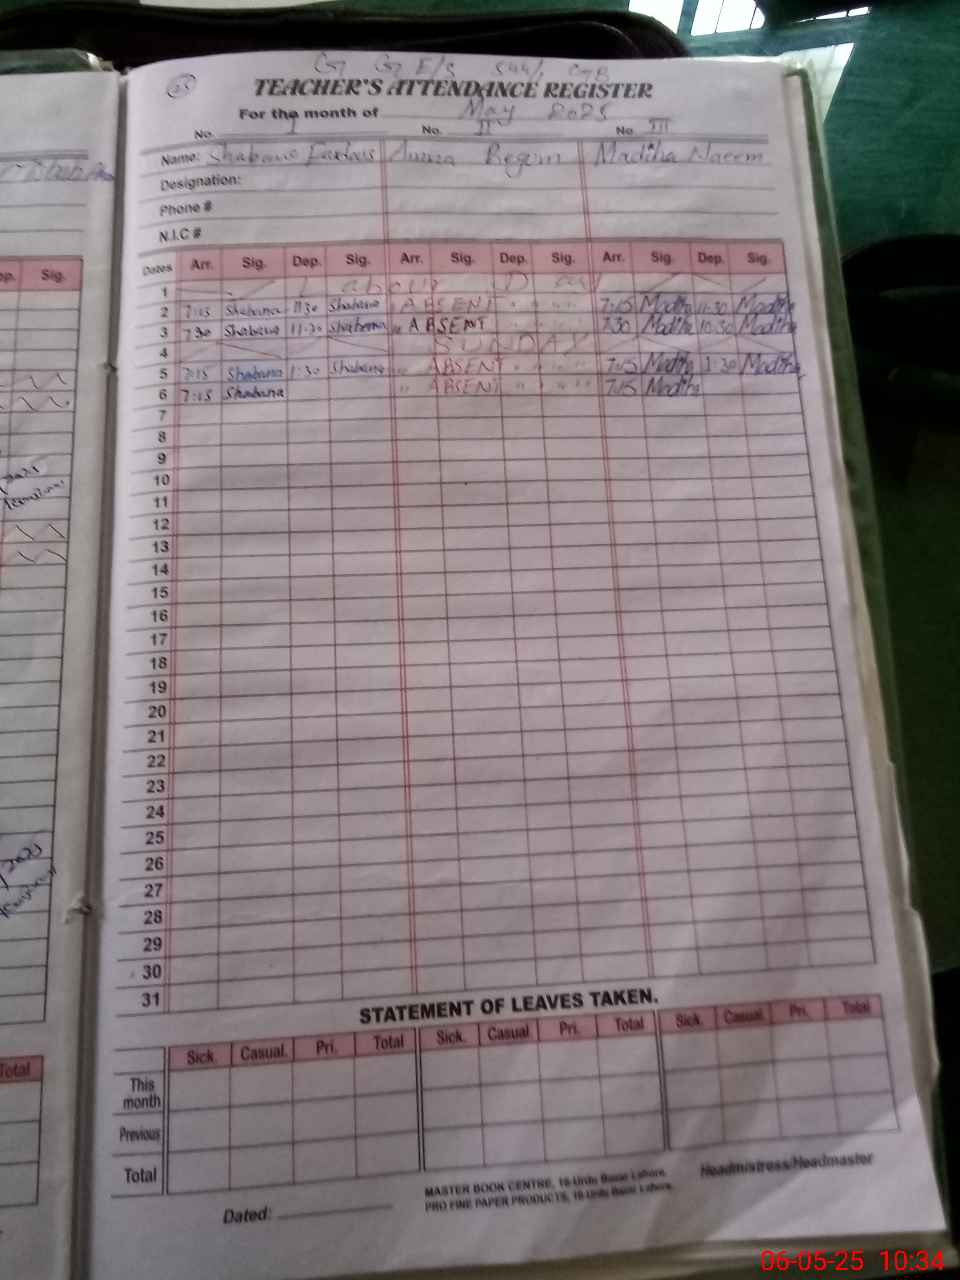 25
G G E/S 544/ GB
TEACHER'S ATTENDANCE REGISTER
For the month of May 2025
No. I No. II No. III
Name: Shabana Amna Begum Madiha Naeem
Designation:
Phone #
N.I.C #
Dates Arr. Sig. Dep. Sig. Arr. Sig. Dep. Sig. Arr. Sig. Dep. Sig.
1 Labour Day
2 7:15 Shabana 11:30 Shabana " ABSENT " " " 7:15 Madiha 11:30 Madiha
3 7:30 Shabana Shabana " ABSENT " " " 7:30 Madiha 10:30 Madiha
4 SUNDAY
5 7:15 Shabana 1:30 Shabana " ABSENT " " " 7:15 Madiha 1:30 Madiha
6 7:15 Shabana " ABSENT " " " 7:15 Madiha
7
8
9
10
11
12
13
14
15
16
17
18
19
20
21
22
23
24
25
26
27
28
29
30
31
STATEMENT OF LEAVES TAKEN.
Sick. Casual. Pri. Total Sick. Casual. Pri. Total Sick. Casual. Pri. Total
This month
Previous
Total
Dated:
MASTER BOOK CENTRE, 16-Urdu Bazar Lahore.
PRO FINE PAPER PRODUCTS, 16-Urdu Bazar Lahore.
Headmistress/Headmaster
ep. Sig.
2025
2025
Total
06-05-25 10:34